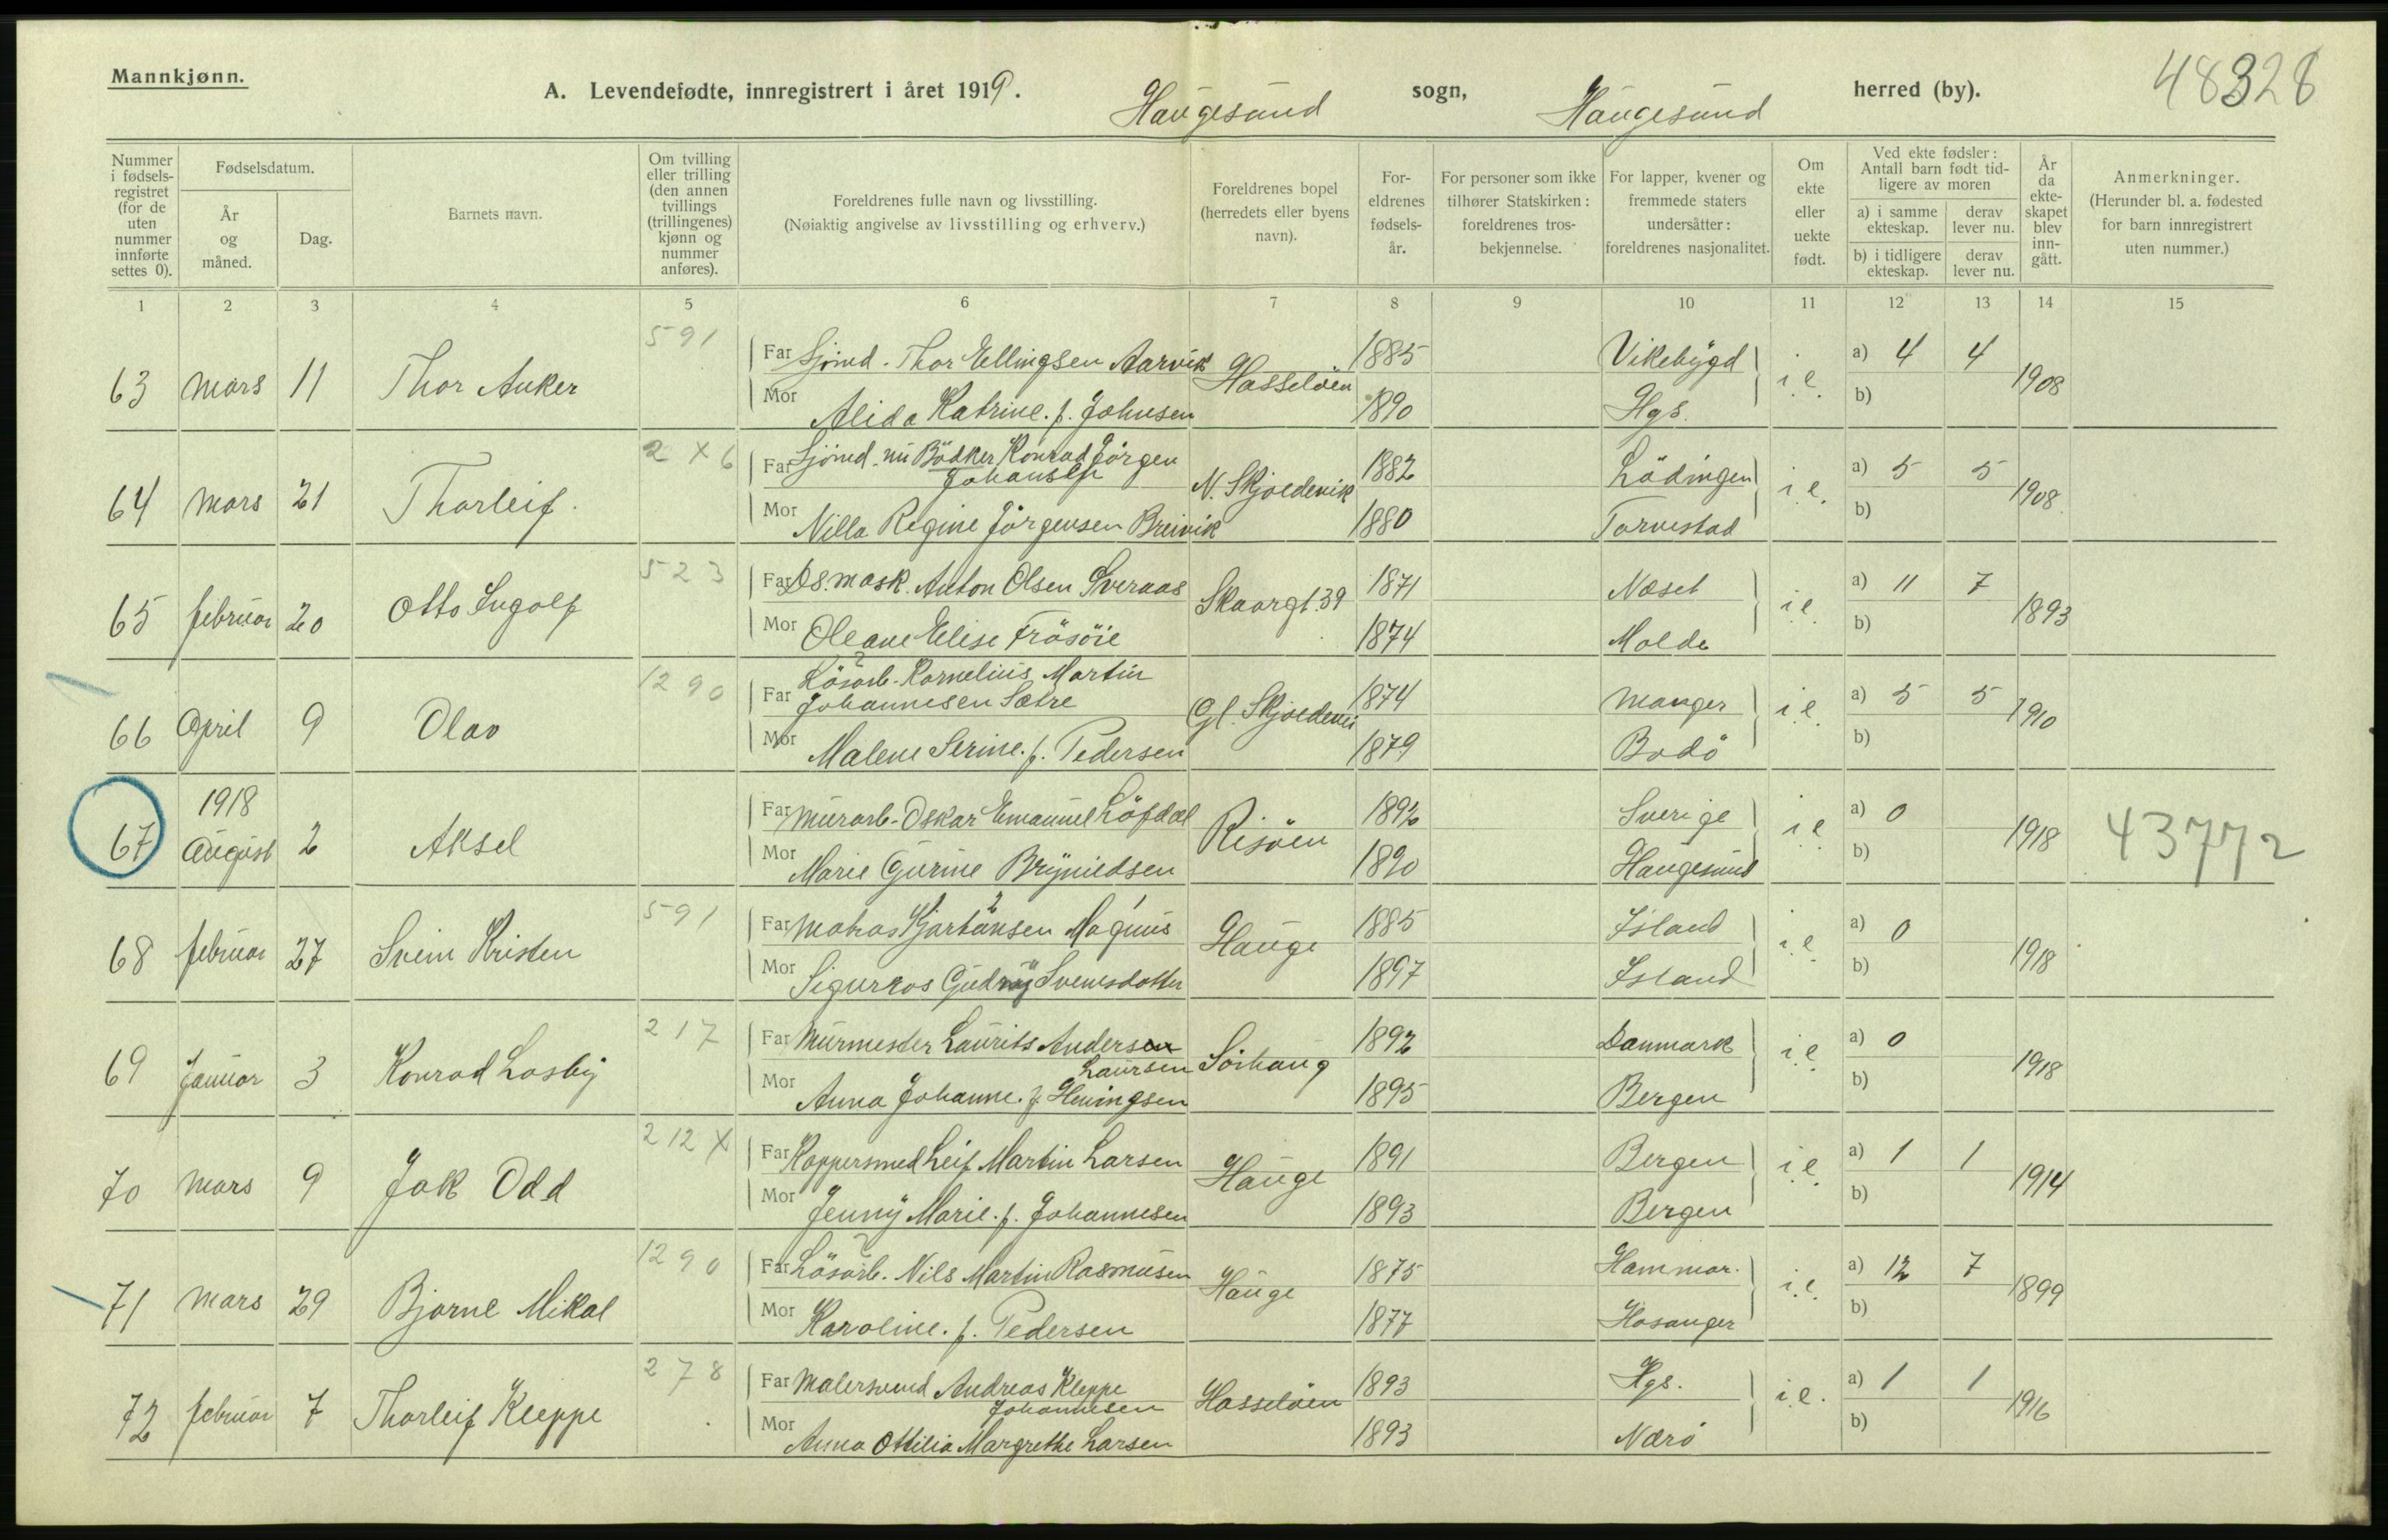 Mannkjønn.
48328
A. Levendefødte, innregistrert i året 1919. Haugesund sogn, Haugesund herred (by).
Nummer i fødsels-registret (for de uten nummer innførte settes 0).
Fødselsdatum.
År og måned.
Dag.
Barnets navn.
Om tvilling eller trilling (den annen tvillings (trillingenes) kjønn og nummer anføres).
Foreldrenes fulle navn og livsstilling.
(Nøiaktig angivelse av livsstilling og erhverv.)
Foreldrenes bopel (herredets eller byens navn).
For-eldrenes fødsels-år.
For personer som ikke tilhører Statskirken: foreldrenes tros-bekjennelse.
For lapper, kvener og fremmede staters undersåtter: foreldrenes nasjonalitet.
Om ekte eller uekte født.
Ved ekte fødsler: Antall barn født tid-ligere av moren
a) i samme ekteskap.
derav lever nu.
b) i tidligere ekteskap.
derav lever nu.
År da ekte-skapet blev inn-gått.
Anmerkninger.
(Herunder bl. a. fødested for barn innregistrert uten nummer.)
1 2 3 4 5 6 7 8 9 10 11 12 13 14 15
591
Far Sjömd. Thor Ellingsen Aarvik 1885 Vikebygd a) 4 4
63 Mars 11 Thor Anker Hasseløen i.e. 1908
Mor Alida Katrine. f. Johnsen 1890 Hgs. b)
2 X 6
Far Sjömd. nu Bödker Konrad Jörgen
Johansen 1882 Lödingen a) 5 5
64 Mars 21 Thorleif. N. Skjoldevik i.e. 1908
Mor Nilla Regine Jörgensen Breivik 1880 Torvestad b)
523
Far Ds. mask. Anton Olsen Sveraas 1871 Næset a) 11 7
65 februar 20 Otto Ingolf Skaargt. 39 i.e. 1893
Mor Oleane Elise Frösöie 1874 Molde b)
1290
Far Lösarb. Kornelius Martin
Johannesen Sætre 1874 Manger a) 5 5
66 April 9 Olav Gl. Skjoldevei i.e. 1910
Mor Malene Serine. f. Pedersen 1879 Bodö b)
1918
Far Murarb. Oskar Emanuel Löfdal 1892 Sverige a) 0
67 August 2 Aksel Risöen i.e. 1918 43772
Mor Marie Gurine Brynildsen 1890 Haugesund b)
591
Far Matros Kjartansen Magnus 1885 Island a) 0
68 februar 27 Svein Kristen Hauge i.e. 1918
Mor Sigurros Svenesdotter 1897 Island b)
217
Far Murmester Laurits Andersen
Laursen 1892 Danmark a) 0
69 Januar 3 Konrad Losby Sörhaug i.e. 1918
Mor Anna Johanne. f. Heningsen 1895 Bergen b)
212 X
Far Koppersmed Leif Martin Larsen 1891 Bergen a) 1 1
70 Mars 9 Jak Odd Hauge i.e. 1914
Mor Jenny Marie. f. Johannesen 1893 Bergen b)
1290
Far Lösarb. Nils Martin Rasmusen 1875 Hammar. a) 12 7
71 Mars 29 Bjarne Mikal Hauge i.e. 1899
Mor Karoline. f. Pedersen 1877 Hosanger b)
278
Far Malersvend Andreas Kleppe
Johannesen 1893 Hgs. a) 1 1
72 februar 7 Thorleif Kleppe Hasseløen i.e. 1916
Mor Anna Ottilia Margrethe Larsen 1893 Nærö b)